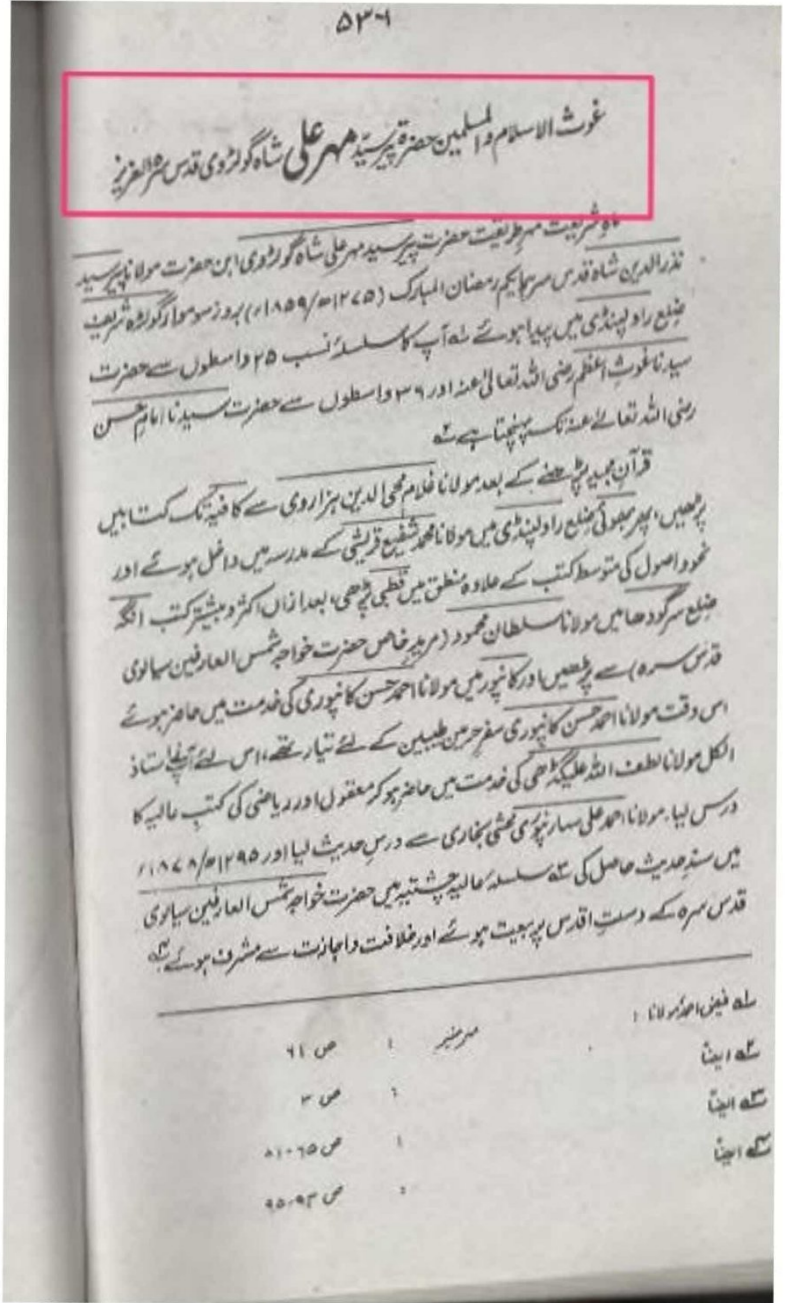 ۵۳۶
غوث الاسلام والمسلمین حضرۃ پیر سیّد مہر علی شاہ گولڑوی قدس سرہ العزیز
ماہِ شریعت مہرِ طریقت حضرت پیر سید مہر علی شاہ گولڑوی ابن حضرت مولانا پیر سید
نذر الدین شاہ قدس سرہما یکم رمضان المبارک (۱۲۷۵ھ/۱۸۵۹ء) بروز سوموار گولڑہ شریف
ضلع راولپنڈی میں پیدا ہوئے لے آپ کا سلسلۂ نسب ۲۵ واسطوں سے حضرت
سیدنا غوثِ اعظم رضی اللہ تعالیٰ عنہ اور ۳۶ واسطوں سے حضرت سیدنا امام حسن
رضی اللہ تعالےٰ عنہ تک پہنچتا ہے ۲ے
قرآن مجید پڑھنے کے بعد مولانا غلام محی الدین ہزاروی سے کافیہ تک کتابیں
پڑھیں، پھر بھوئی ضلع راولپنڈی میں مولانا محمد شفیع قریشی کے مدرسہ میں داخل ہوئے اور
نحو و اصول کی متوسط کتب کے علاوہ منطق میں قطبی پڑھی، بعد ازاں اکثر و بیشتر کتب انگہ
ضلع سرگودھا میں مولانا سلطان محمود (مریدِ خاص حضرت خواجہ شمس العارفین سیالوی
قدس سرہ) سے پڑھیں اور کانپور میں مولانا احمد حسن کانپوری کی خدمت میں حاضر ہوئے
اس وقت مولانا احمد حسن کانپوری سفرِ حرمین طیبین کے لئے تیار تھے، اس لئے آپ استاذ
الکل مولانا لطف اللہ علیگڑھی کی خدمت میں حاضر ہو کر معقول اور ریاضی کی کتبِ عالیہ کا
درس لیا۔ مولانا احمد علی سہارنپوری محشی بخاری سے درسِ حدیث لیا اور ۱۲۹۵ھ/۱۸۷۸ء
میں سندِ حدیث حاصل کی ۳ے سلسلۂ عالیہ چشتیہ میں حضرت خواجہ شمس العارفین سیالوی
قدس سرہ کے دستِ اقدس پر بیعت ہوئے اور خلافت و اجازت سے مشرف ہوئے ۴ے
۱ے فیض احمد مولانا : مہر منیر : ص ۶۱
۲ے ایضاً : ص ۳
۳ے ایضاً : ص ۶۵-۸۱
۴ے ایضاً : ص ۹۳-۹۵